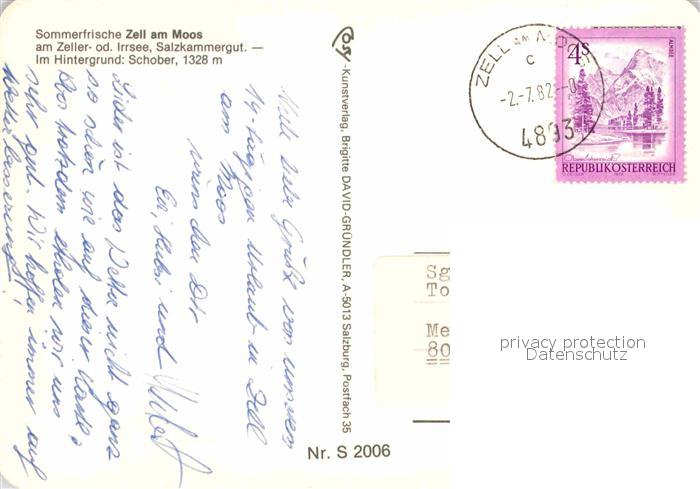 Sommerfrische Zell am Moos
am Zeller- od. Irrsee, Salzkammergut. —
Im Hintergrund: Schober, 1328 m
Cosy-Kunstverlag, Brigitte DAVID-GRÜNDLER, A-5013 Salzburg, Postfach 35
Viele liebe Grüße von unserem
14-tägigen Urlaub in Zell
am Moos
wünschen Dir
und
Leider ist das Wetter nicht ganz
so schön wie auf dieser Karte.
trotzdem erholen wir uns
sehr gut. Wir hoffen immer auf
Wetterbesserung!
Nr. S 2006
ZELL AM MOOS
c
-2.-7.82
4893
4S
ALMSEE
REPUBLIK ÖSTERREICH
Sg
To
Me
80
privacy protection
Datenschutz